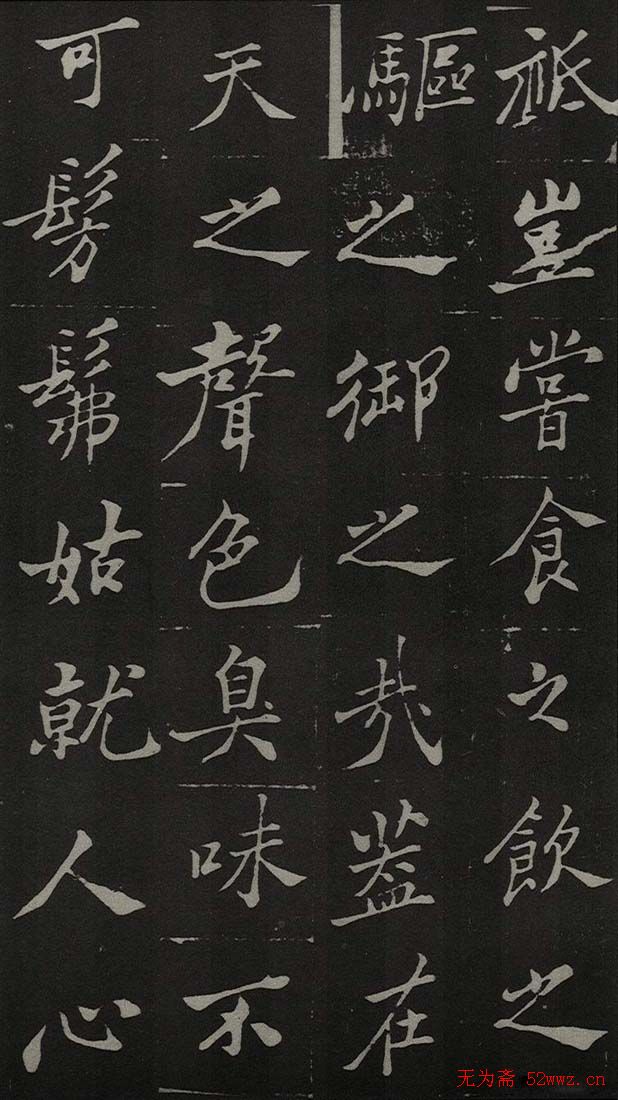 祗豈嘗食之飲之
驅之御之哉蓋在
天之聲色臭味不
可髣髴姑就人心
无为斋 52wwz.cn